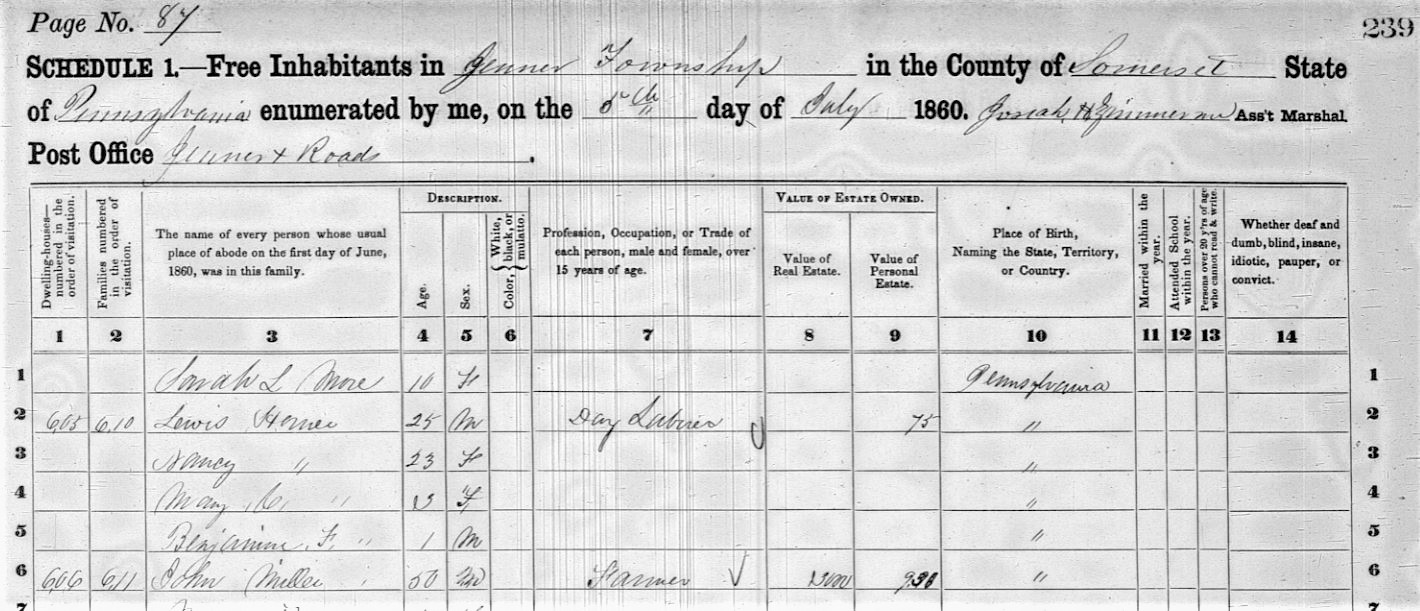 Page No. 87
239
SCHEDULE 1.—Free Inhabitants in Jenner Township in the County of Somerset State
of Pennsylvania enumerated by me, on the 5th day of July 1860. Josiah H Zimmerman Ass't Marshal.
Post Office Jenner X Roads.
DESCRIPTION. VALUE OF ESTATE OWNED.
Dwelling-houses—numbered in the order of visitation.
Families numbered in the order of visitation.
The name of every person whose usual place of abode on the first day of June, 1860, was in this family.
Age.
Sex.
Color, { White, black, or mulatto.
Profession, Occupation, or Trade of each person, male and female, over 15 years of age.
Value of Real Estate.
Value of Personal Estate.
Place of Birth, Naming the State, Territory, or Country.
Married within the year.
Attended School within the year.
Persons over 20 y'rs of age who cannot read & write.
Whether deaf and dumb, blind, insane, idiotic, pauper, or convict.
1 2 3 4 5 6 7 8 9 10 11 12 13 14
1 Sarah L More 10 F Pennsylvania 1
2 605 610 Lewis Horner 25 M Day Laborer 75 " 2
3 Nancy " 23 F " 3
4 Mary C. " F " 4
5 Benjamin F. " 1 M " 5
6 606 611 John Miller 50 M Farmer " 6
7 7